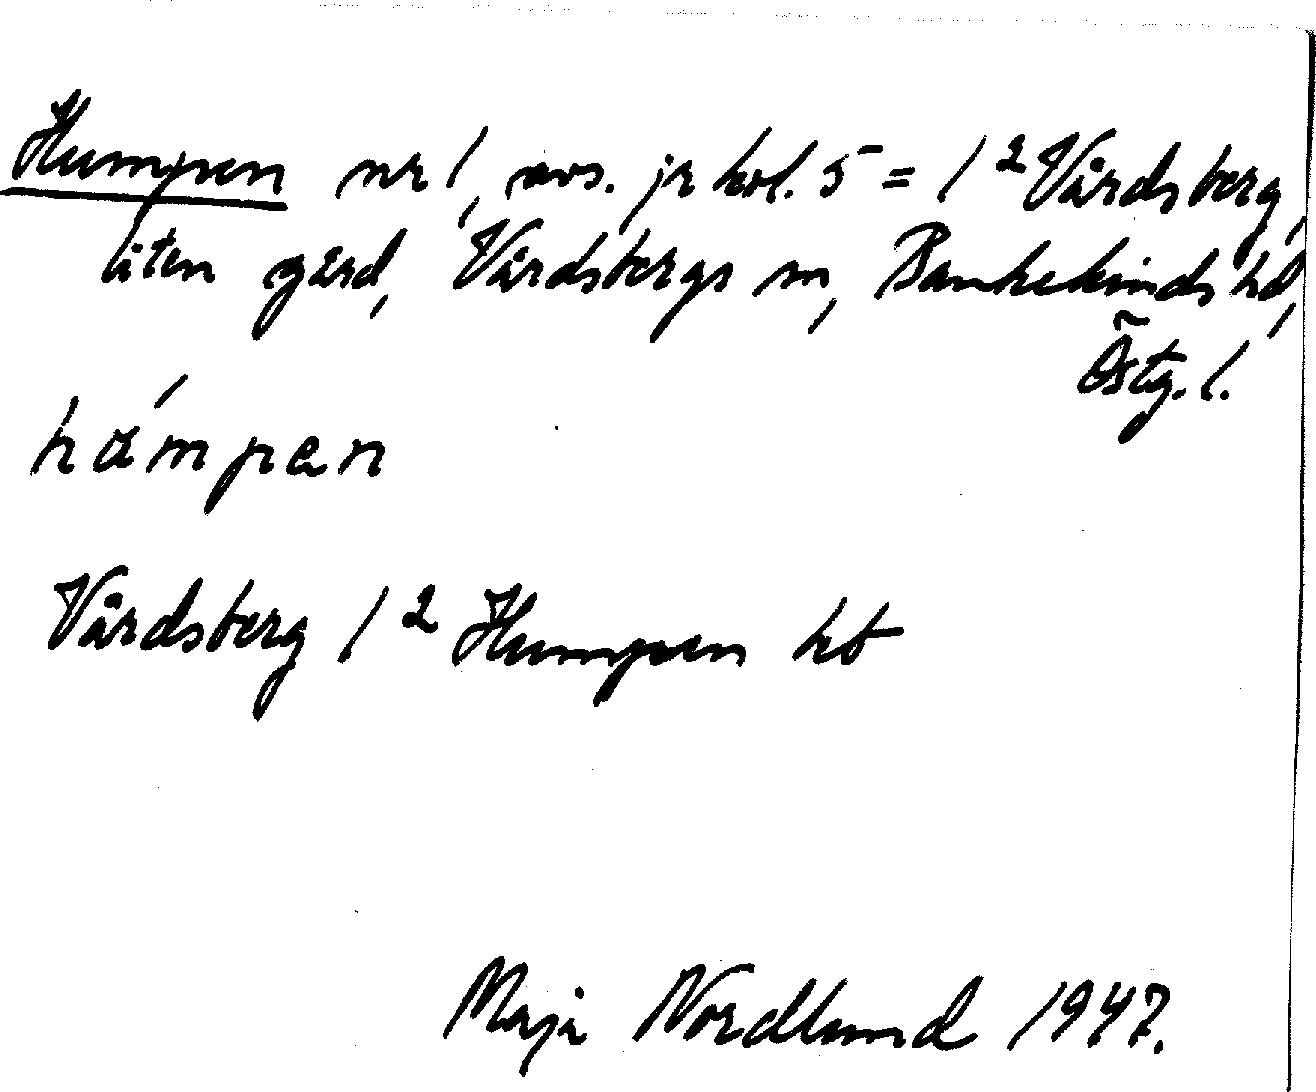 Humpen nr 1, avs. jr kol. 5 = 1² Vårdsberg,
liten gård, Vårdsbergs sn, Bankekinds hd,
Östg. l.
hámpen
Vårdsberg 1² Humpen hb
Maja Nordlund 1947.